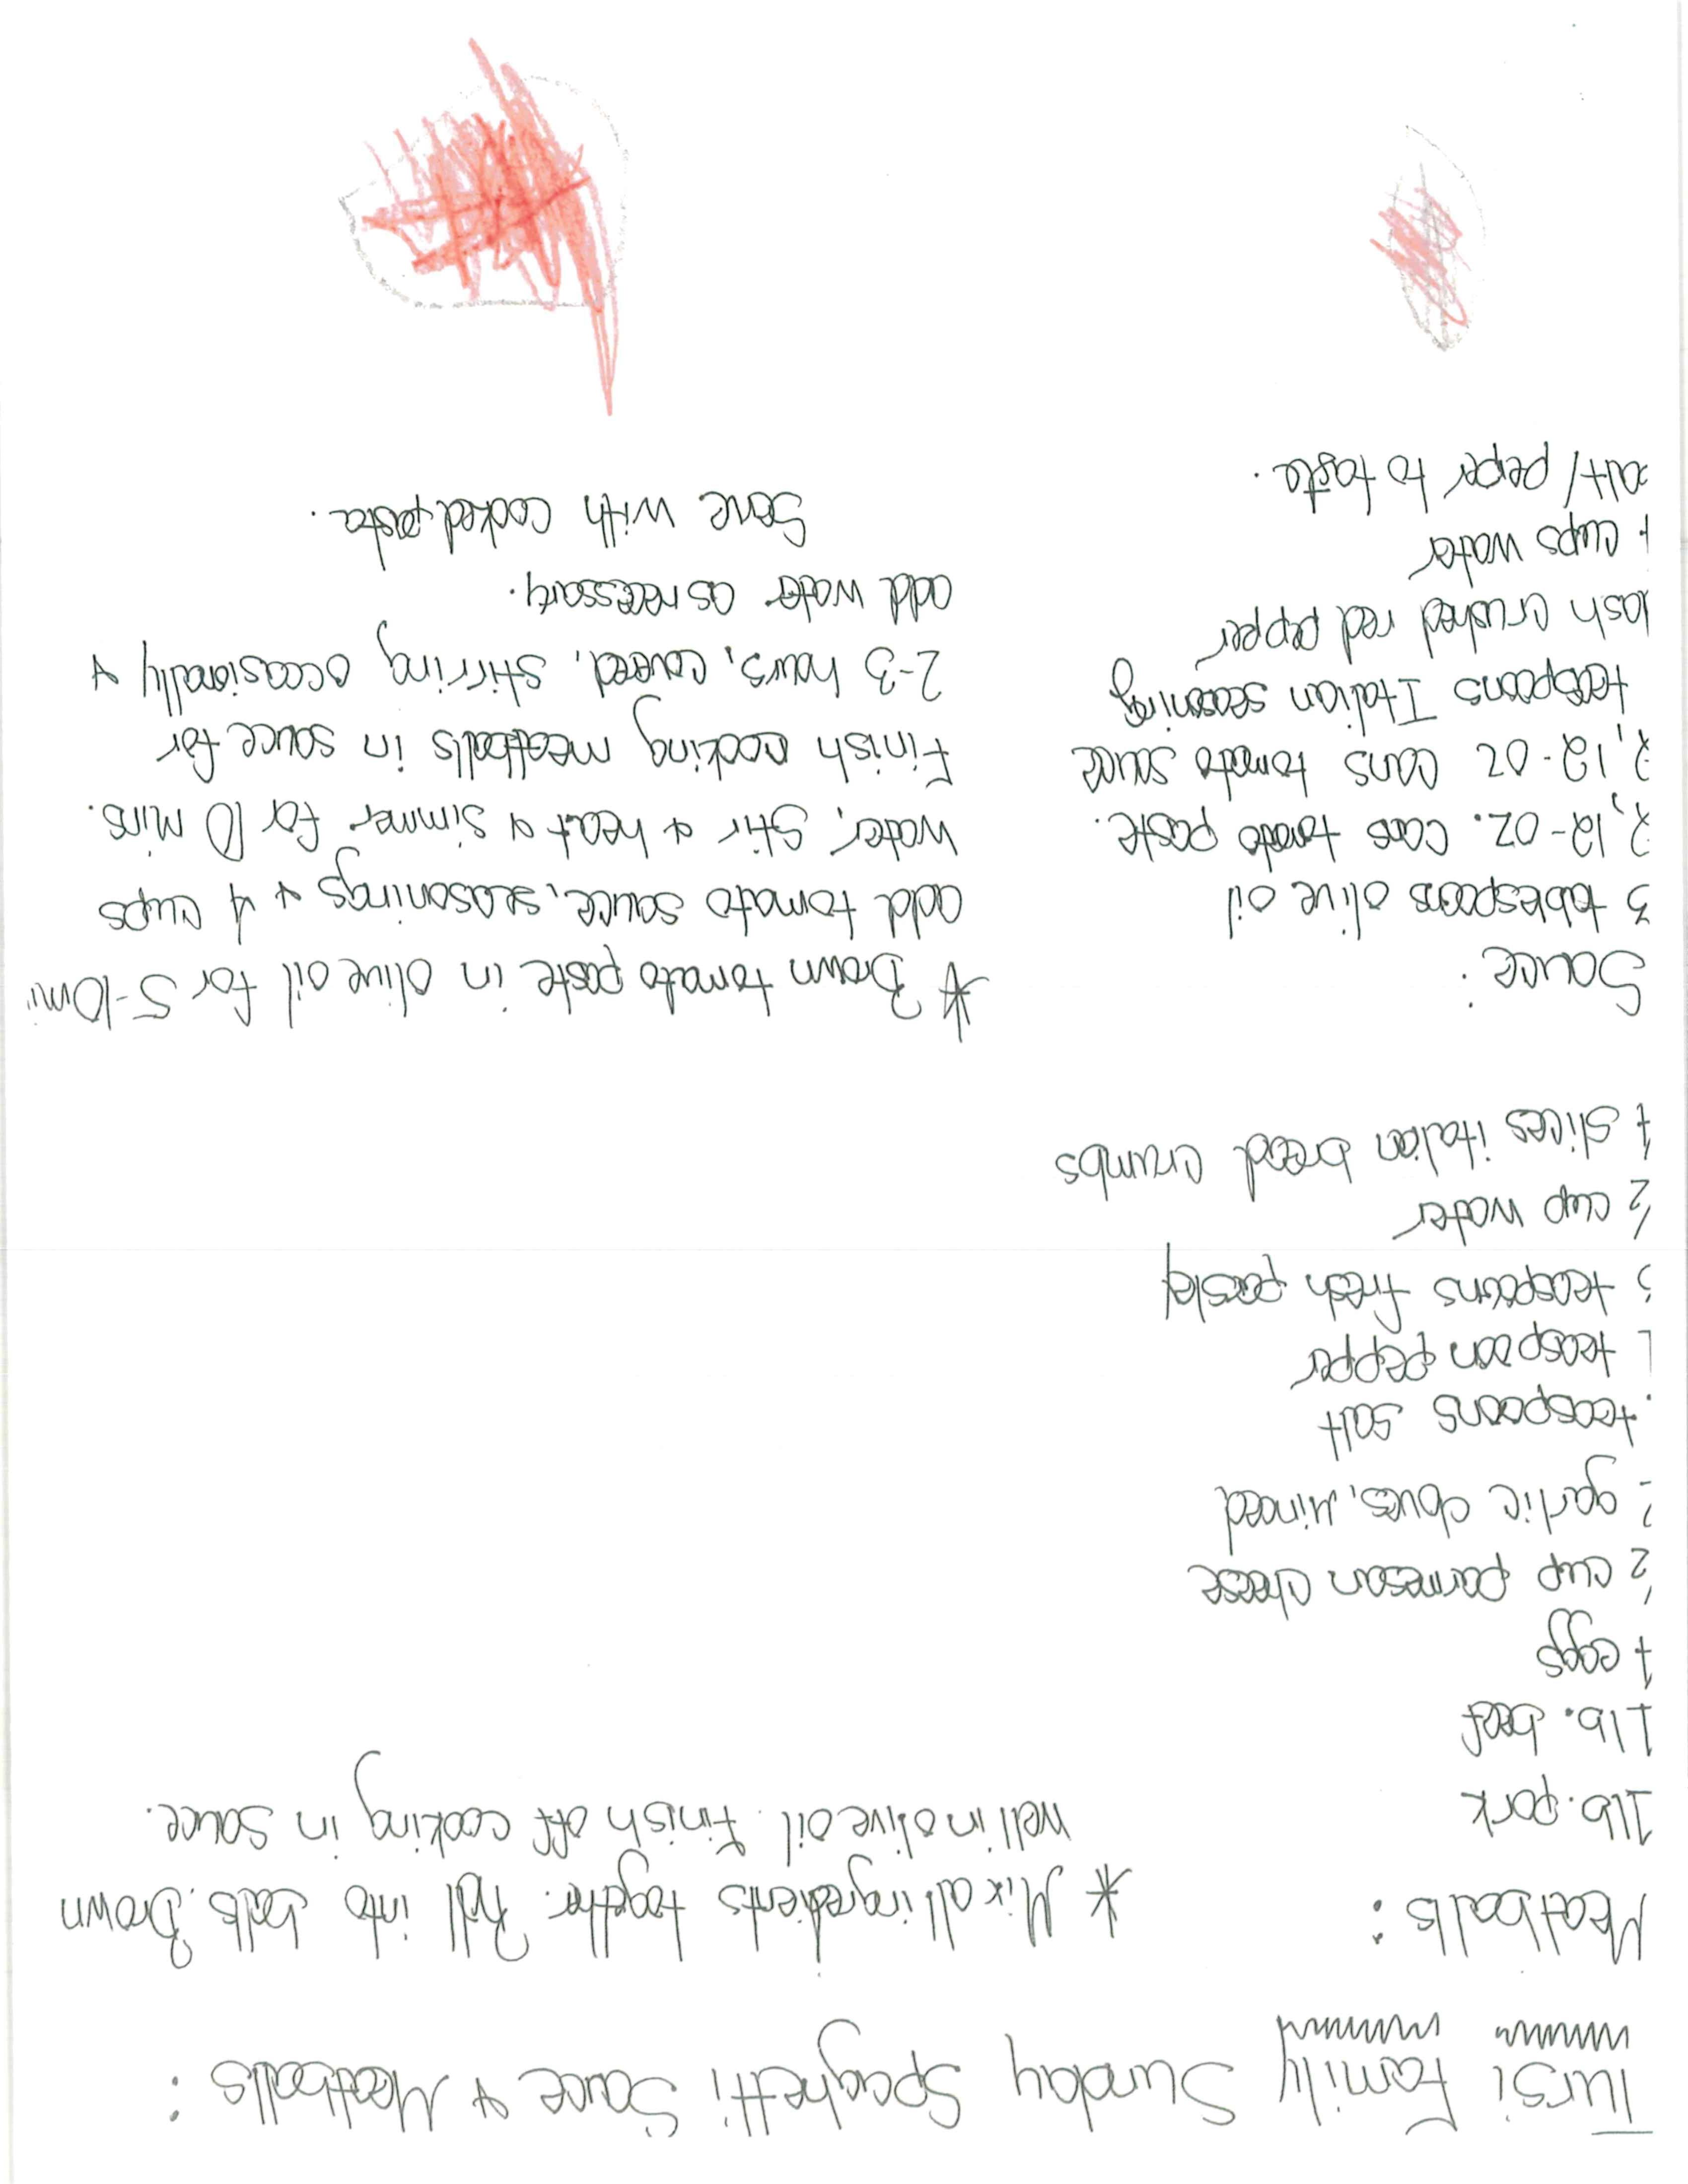 Tursi Family Sunday Spaghetti Sauce & Meatballs :
Meatballs :
1 lb. pork
1 lb. beef
4 eggs
1/2 cup parmesan cheese
2 garlic cloves, minced
teaspoons salt
1 teaspoon pepper
3 teaspoons fresh parsley
1/2 cup water
4 slices italian bread crumbs
* Mix all ingredients together. Roll into balls. Brown
well in olive oil. Finish off cooking in sauce.
Sauce :
3 tablespoons olive oil
2, 12-oz. cans tomato paste.
2, 12-oz cans tomato sauce
teaspoons Italian seasoning
dash crushed red pepper
4 cups water
salt/ peper to taste.
* Brown tomato paste in olive oil for 5-10 min
add tomato sauce, seasonings & 4 cups
water. Stir & heat & simmer for 10 mins.
Finish cooking meatballs in sauce for
2-3 hours, covered, stirring occasionally &
add water as necessary.
Serve with cooked pasta.